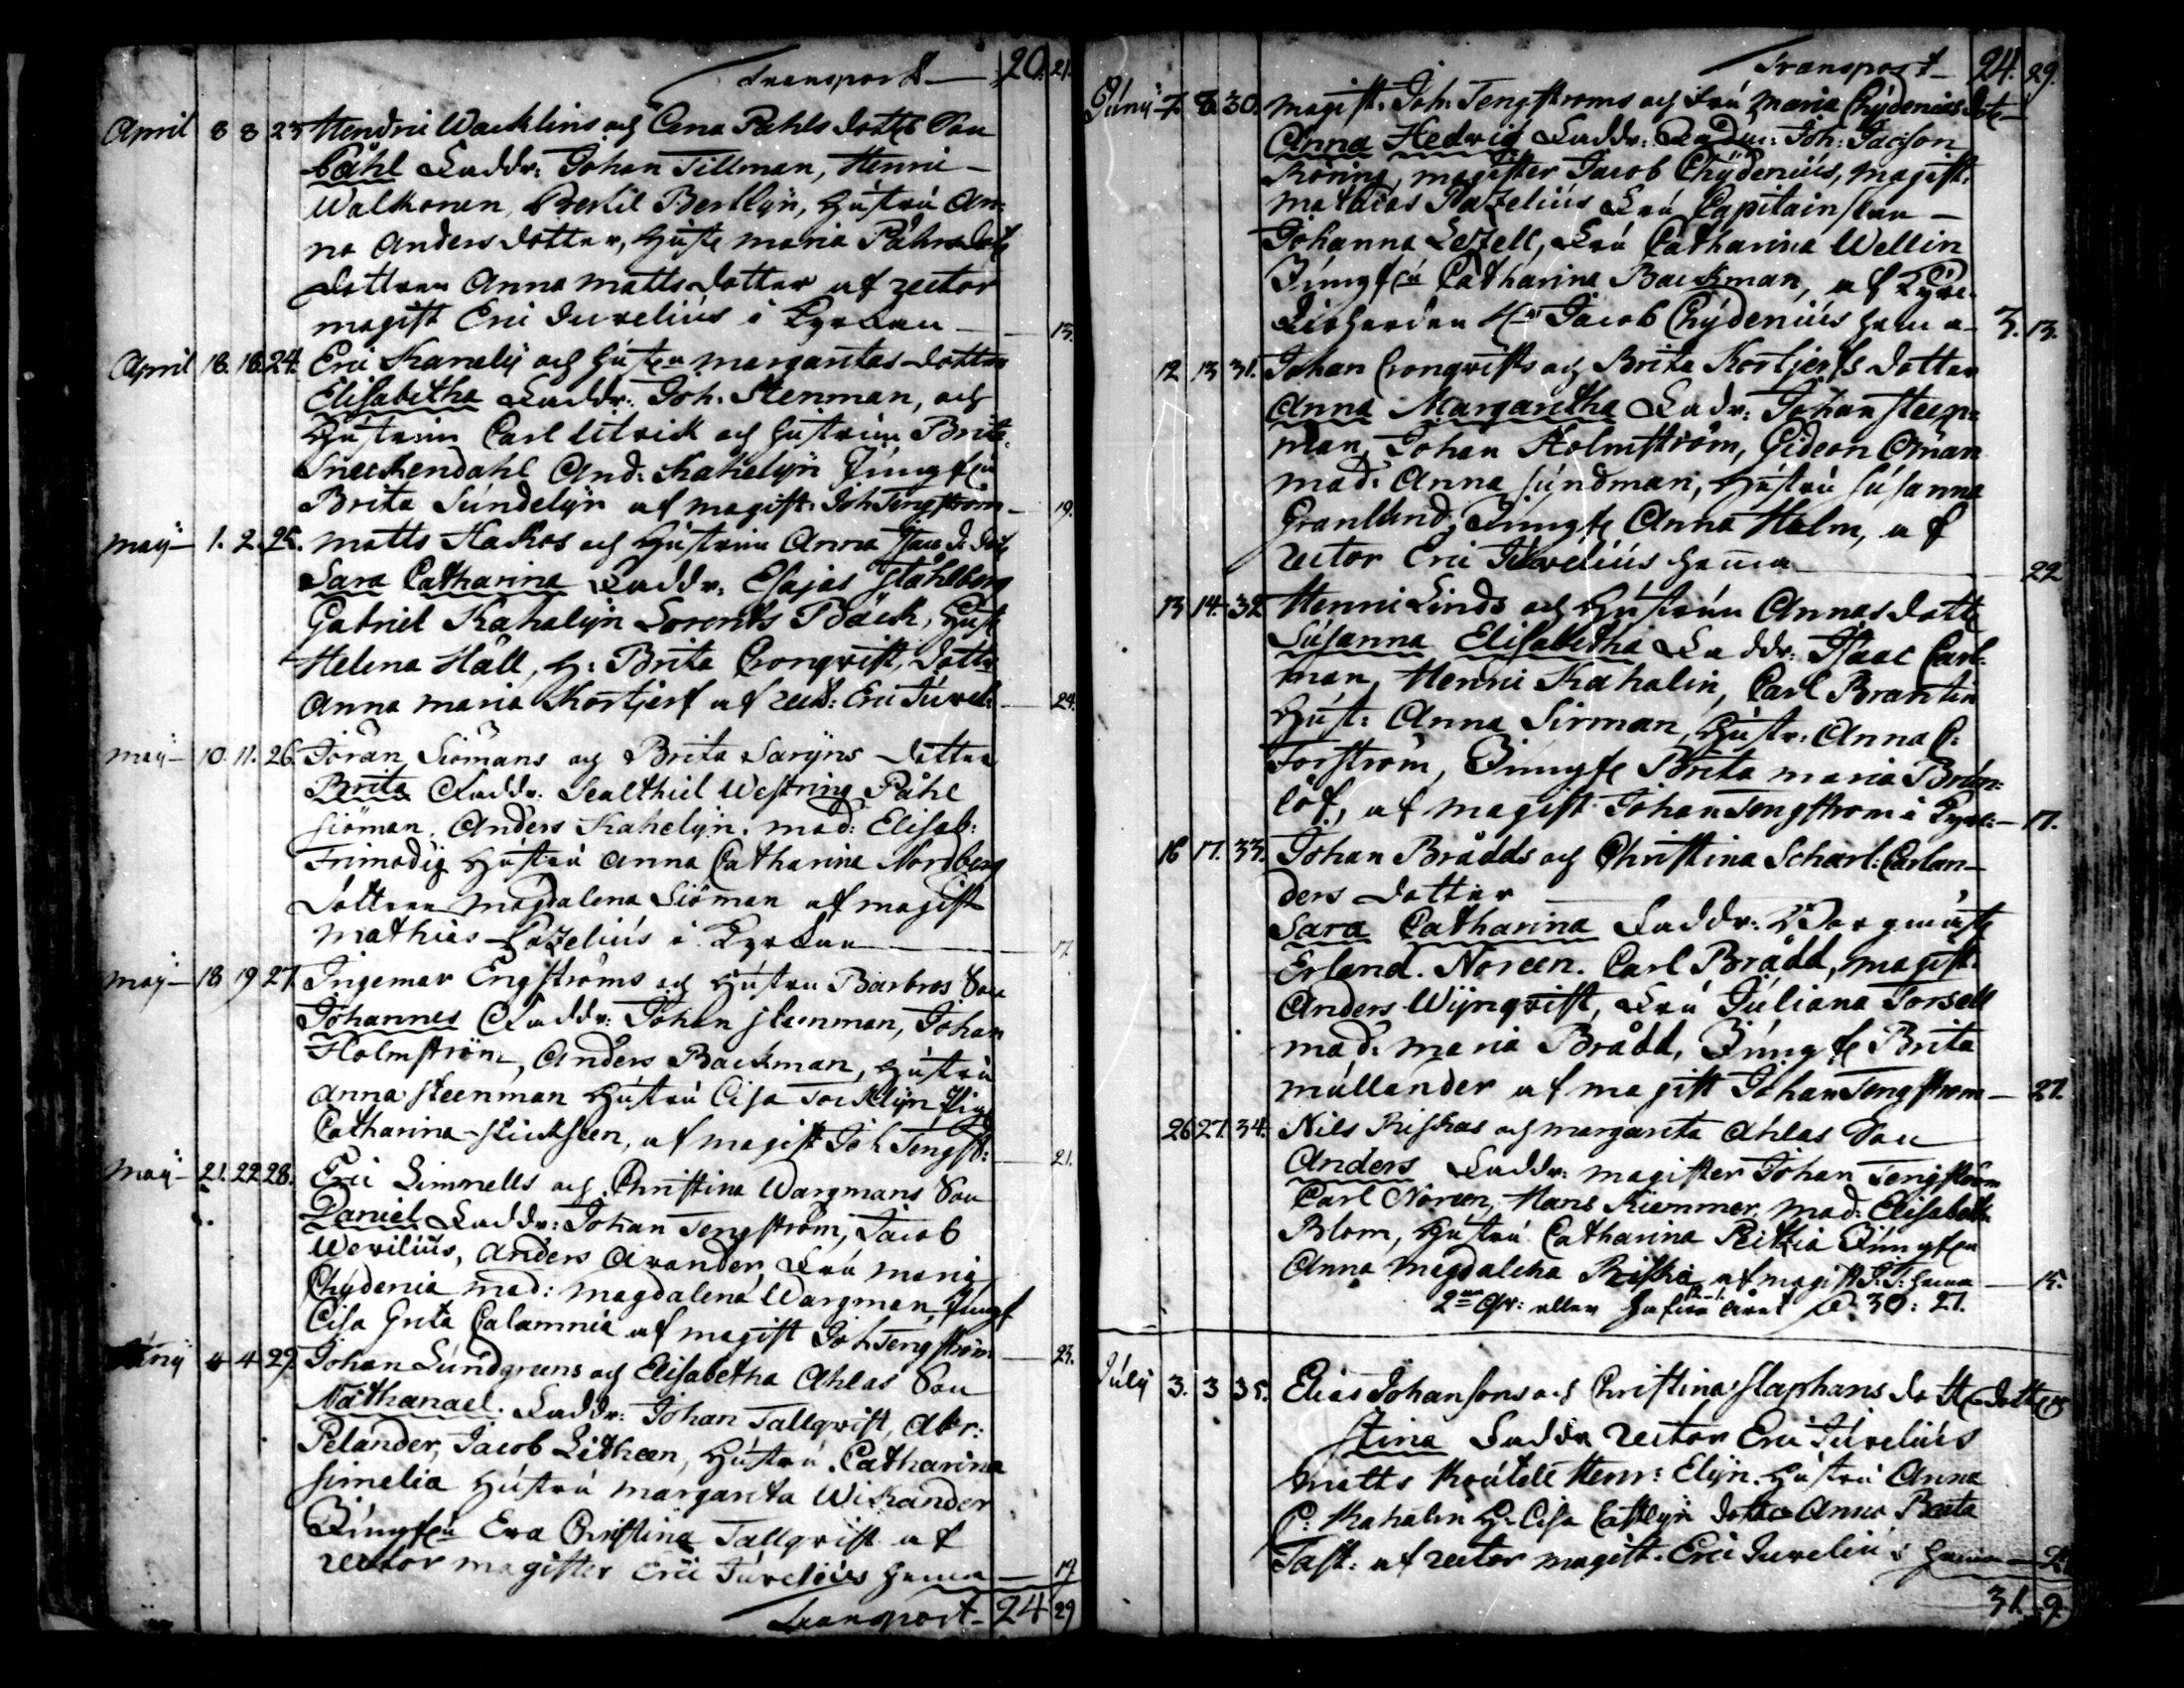 Transport — 20. 21.
April 8 8 23 Hendric Wacklins och Cena Påhls dotters Son
Påhl Faddr: Johan Tillman, Henric
Walkonen, Bertil Bertlÿn, Hústrú An:
na Andersdotter, Hústr Maria Påhrsdott
dottren Anna Mattsdotter af rector
magist Eric Iuvelius i Kyrkan — 13.
April 18. 18. 24. Eric Kanelij och Hústrun margaritas dotter
Elisabetha Faddr: Joh. Stenman, och
Hústrun Carl Ulrick och hústrun Brita
Sneckendahl And: Kahelÿn Júngfru
Brita Súndelÿn af magist: Joh Tengström — 19.
maÿ — 1. 2. 25. matts Kakos och Hústrun Anna dott
Sara Catharina Faddr: Esajas Ståhlberg
Gabriel Kahalÿn Lorents Bäck, Hust
Helena Håll, H: Brita Cronqvist, dottr
Anna maria Kortjerf af rect: Eric Iúvel: — 24.
maÿ — 10. 11. 26. Jöran Siömans och Brita Sarÿns dotter
Brita Faddr: Sealthiel Westring Påhl
Siöman. Anders Kahelÿn. mad: Elisab:
Frimodig Hústrú Anna Catharina Nordberg
dottren magdalena Siöman af magist
Mathias Pazelius i Kyrkan — 17.
maÿ — 18 19 27. Ingemar Engströms och Hústru Barbros Son
Johannes Faddr: Johan stenman, Johan
Holmström, Anders Backman, Hústrú
Anna steenman Hústrú Cisa Tocklÿn Pig
Catharina stickseen, af magist Joh Tengst: — 21.
maÿ — 21. 22 28. Eric Limnells och Christina Wargmans Son
Daniel Faddr: Johan Tengström, Jacob
Werilius, Anders Avander, Frú maria
Chÿdenia mad: magdalena Wargman, Júngf
Cisa Grita Calamnia af magist Joh Tengström — 23.
Júnij 4 4 29. Johan Lúndgrens och Elisabetha Ahlas Son
Nathanael. Faddr: Johan Tallqvist, Abr:
Pelander, Jacob Litheen, Hústrú Catharina
Simelia Hústrú margarita Wikander
Júngfru Eva Christina Tallqvist af
rector magister Eric Iúvelius hema — 17
Transport — 24 29
Transport — 24. 29.
Júnij 7. 8. 30. magist: Joh: Tengstroms och Frú Maria Chÿdenias dott
Anna Hedvig Faddr: Joh: Jacson
Röring, magister Jacob Chÿdeniús, magist:
mathias Pazeliús Frú Capitainskan —
Johanna Lefzell, Frú Catharina Wellin
Júngfrú Catharina Backman, af Kyrk-
Herr Jacob Chÿdeniús hema — 3. 13.
12 13 31. Johan Cronqvists och Brita Kortjerfs dotter
Anna Margaretha Fadr: Johan steen:
man, Johan Holmström, Gideon Oman
mad: Anna súndman, Hústrú Súsanna
Granlúnd, Júngfr Anna Holm, af
rector Eric Iúvelius hema — 22
13 14 32 Henric Linds och Hústrún Annas dotte
Súsanna Elisabetha Faddr: Isaac Carl-
man, Henric Kahalin, Carl Brantin
Húst: Anna Sirman, Hústr: Anna C:
Forström, Júngfr Brita maria Brún:
löf, af magist Johan Tengstrom i Kyrk: — 17.
16 17. 33. Johan Brådds och Christina Scharl: Carlan-
ders dotter
Sara Catharina Faddr: Borgmäst
Erland. Noreen. Carl Brådd, magist.
Anders Wijnqvist, Frú Júliana Torsell
mad: maria Brådd, Júngfr Brita
múllander af magist Johan Tengstrom — 27.
26 27. 34. Nils Riskas och margareta Ahlas Son
Anders Faddr: magister Johan Tengström
Carl Noreen, Hans Kiemmer, mad: Elisabeth
Blom, Hústrú Catharina Reikia Júngfru
Anna Magdalena Riska af magist J: T: hema — 15.
2dra Qv: eller halfva året 30: 27.
Júlij 3. 3 35. Elias Johansons och Christina Staphans dott dotter
Stina Faddr rector Eric Iúvelius
matts Henr: Elÿn. Hústrú Anna
C: Kahalin H. Cisa Castlÿn dotter Anna Beata
Tast: af rector magist. Eric Iuvelius hema —
31. 9.